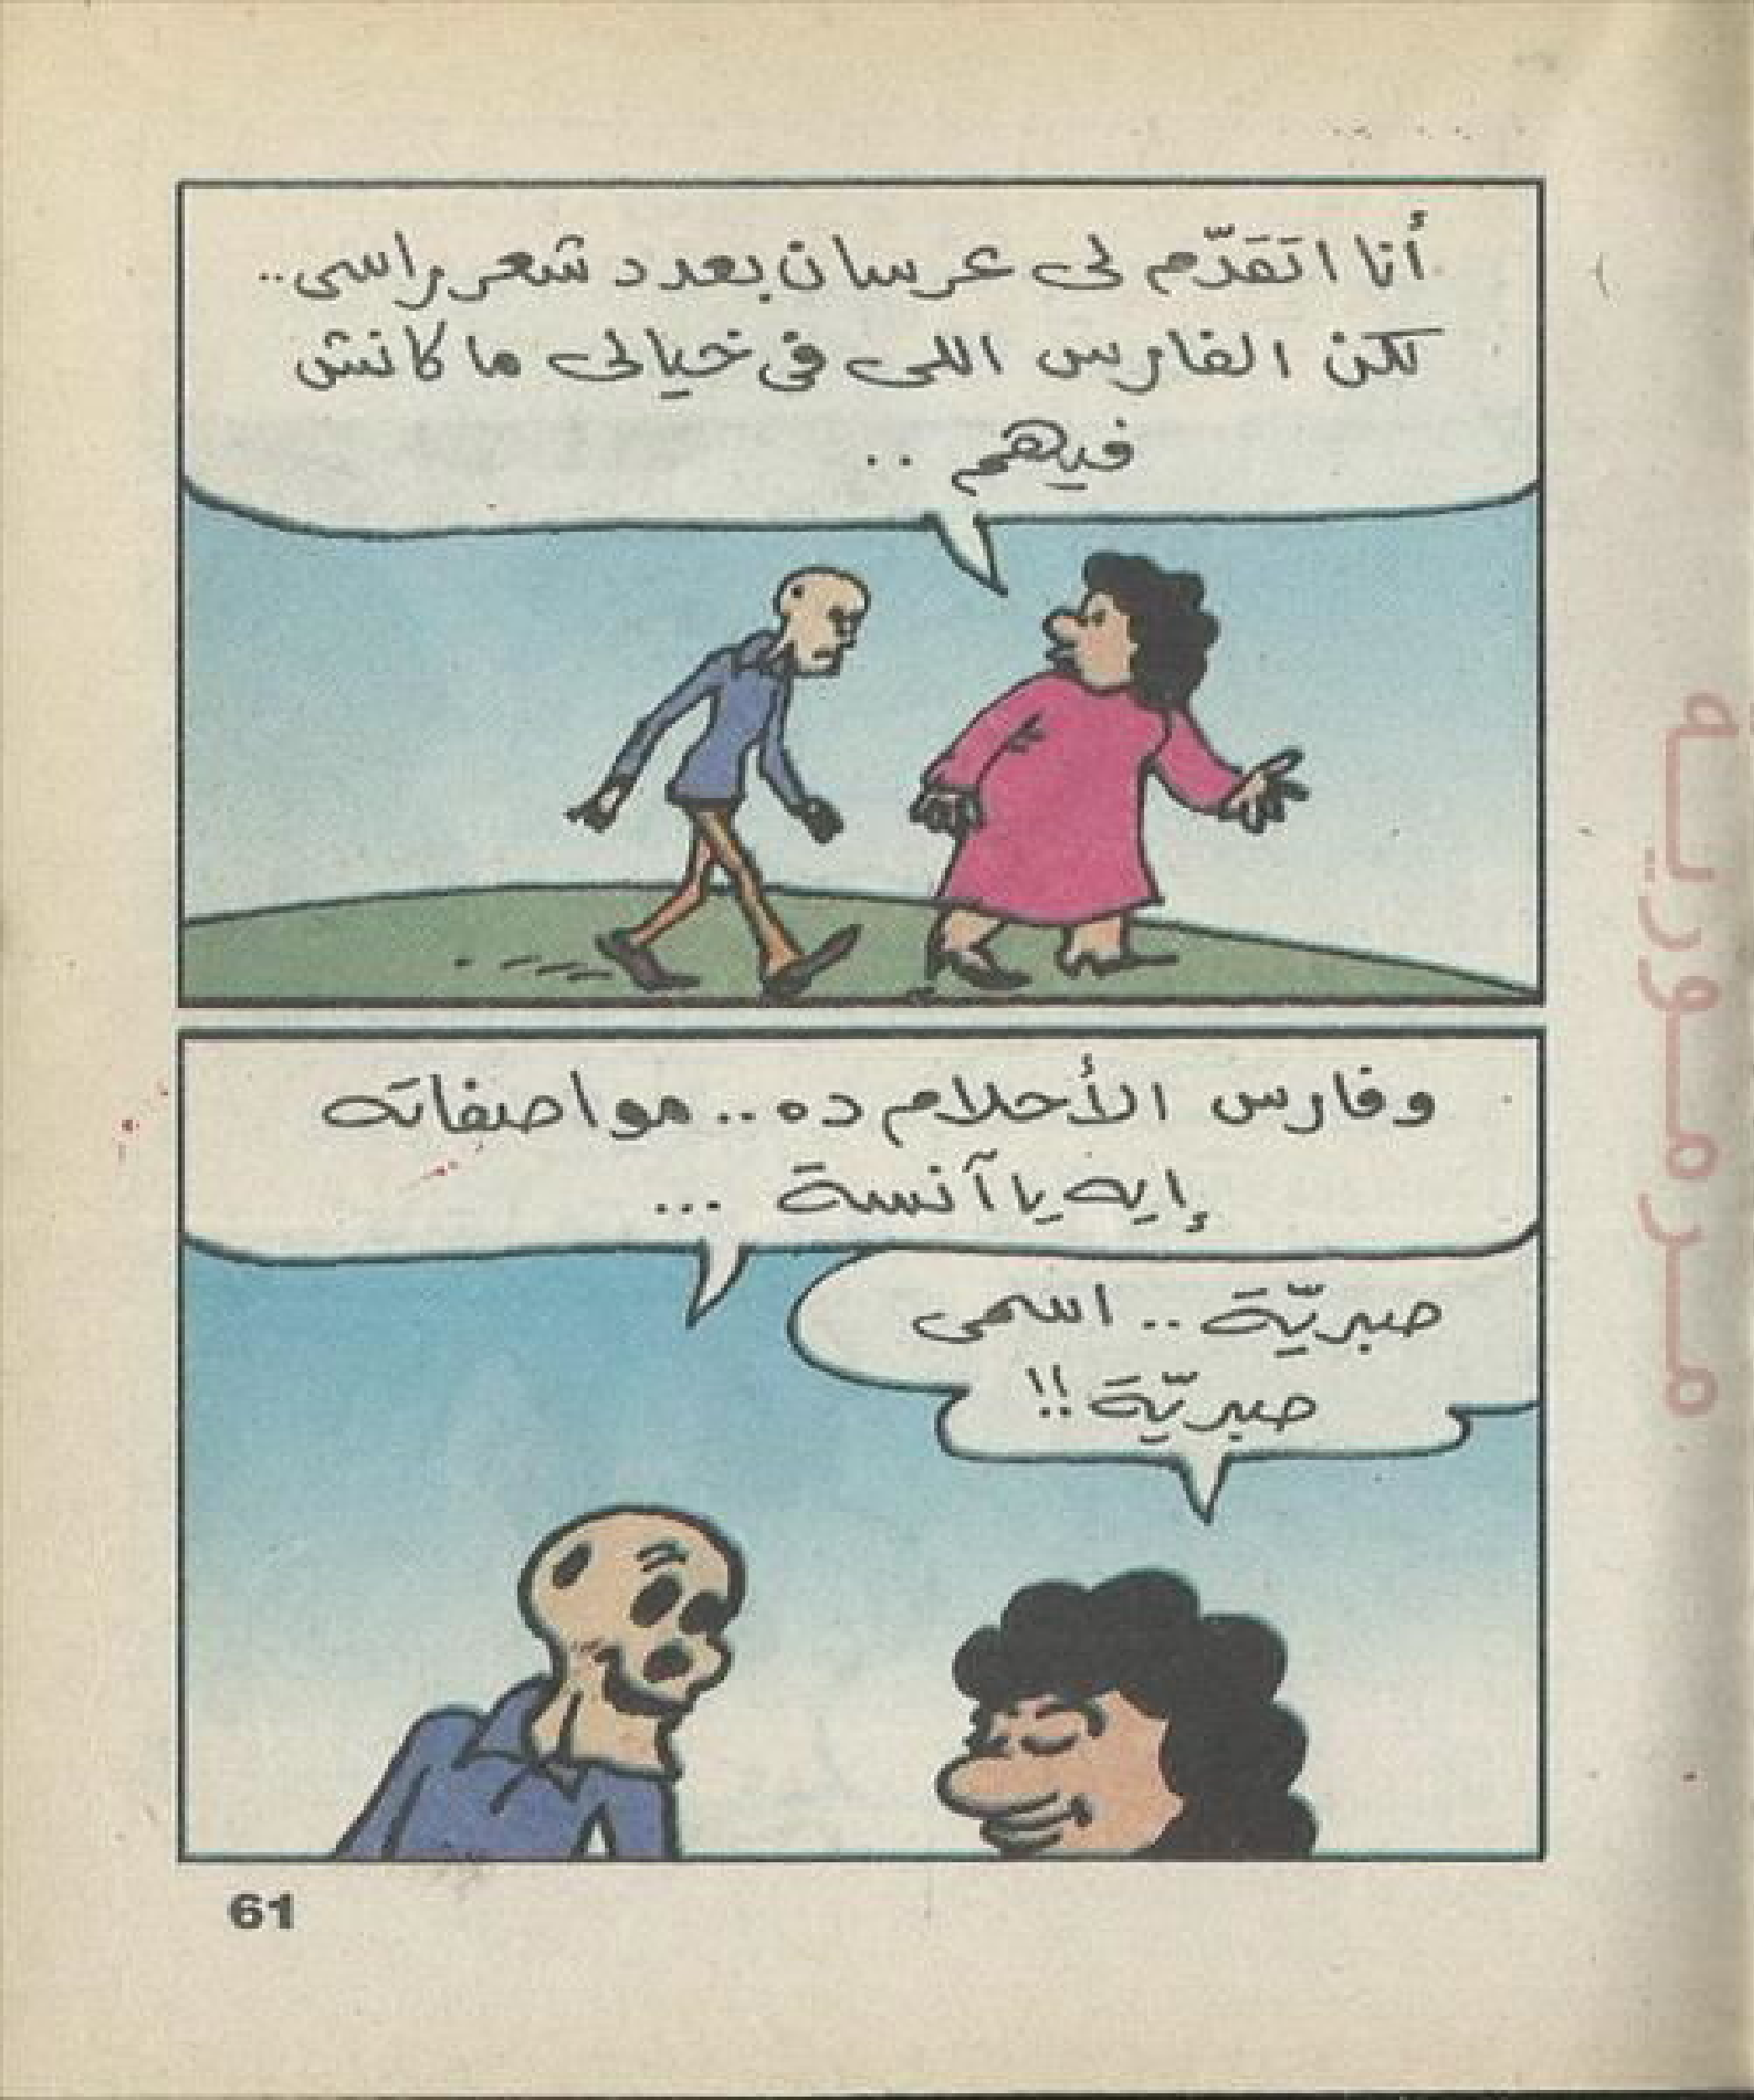 أنا اتَقَدّم لى عرسان بعدد شعر راسى..
لكن الفارس اللى فى خيالى ما كانش
فيهم ..
وفارس الأحلام ده.. مواصفاته
إيه يا آنسة ...
صبريّة .. اسمى
صبريّة !!
61
مرمورية